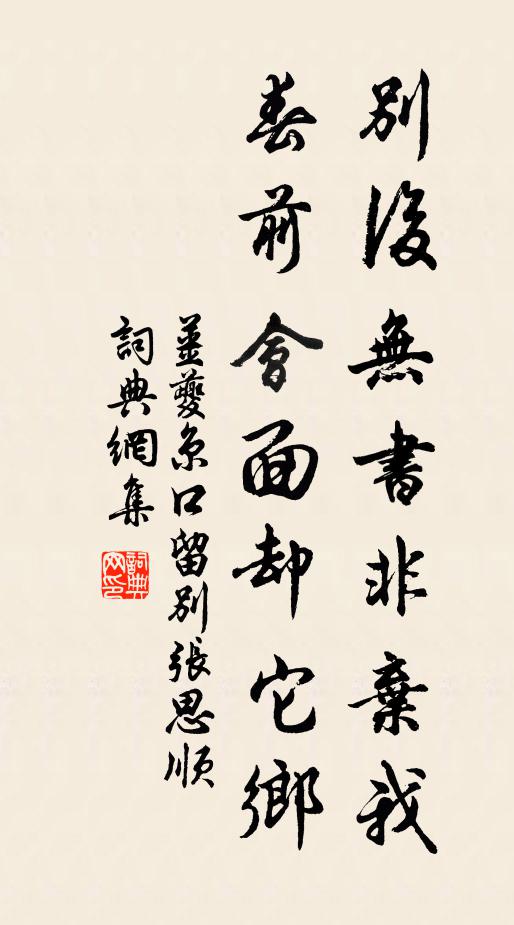 別後無書非棄我
春前會面却它鄉
姜夔京口留別張思順
詞典網集
詞典網印